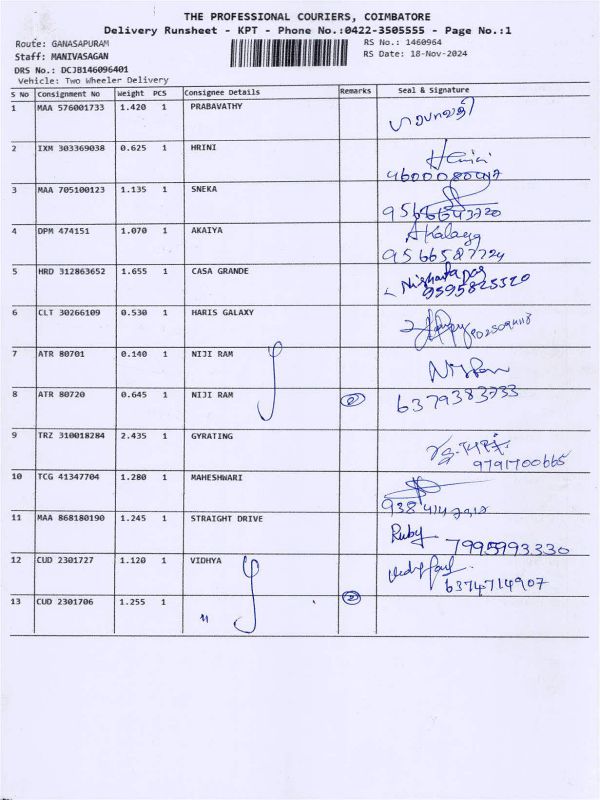 THE PROFESSIONAL COURIERS, COIMBATORE
Delivery Runsheet - KPT - Phone No.:0422-3505555 - Page No.:1
Route: GANASAPURAM RS No.: 1460964
Staff: MANIVASAGAN RS Date: 18-Nov-2024
DRS No.: DCJB146096401
Vehicle: Two Wheeler Delivery
S No Consignment No Weight PCS Consignee Details Remarks Seal & Signature
1 MAA 576001733 1.420 1 PRABAVATHY
2 IXM 303369038 0.625 1 HRINI Hrini
3 MAA 705100123 1.135 1 SNEKA
9566643720
4 DPM 474151 1.070 1 AKAIYA
9566587724
5 HRD 312863652 1.655 1 CASA GRANDE
9595825520
6 CLT 30266109 0.530 1 HARIS GALAXY
7 ATR 80701 0.140 1 NIJI RAM
8 ATR 80720 0.645 1 NIJI RAM 2 6379383733
9 TRZ 310018284 2.435 1 GYRATING
9791700665
10 TCG 41347704 1.280 1 MAHESHWARI
11 MAA 868180190 1.245 1 STRAIGHT DRIVE Ruby
7995993330
12 CUD 2301727 1.120 1 VIDHYA
6374714907
13 CUD 2301706 1.255 1 " 2